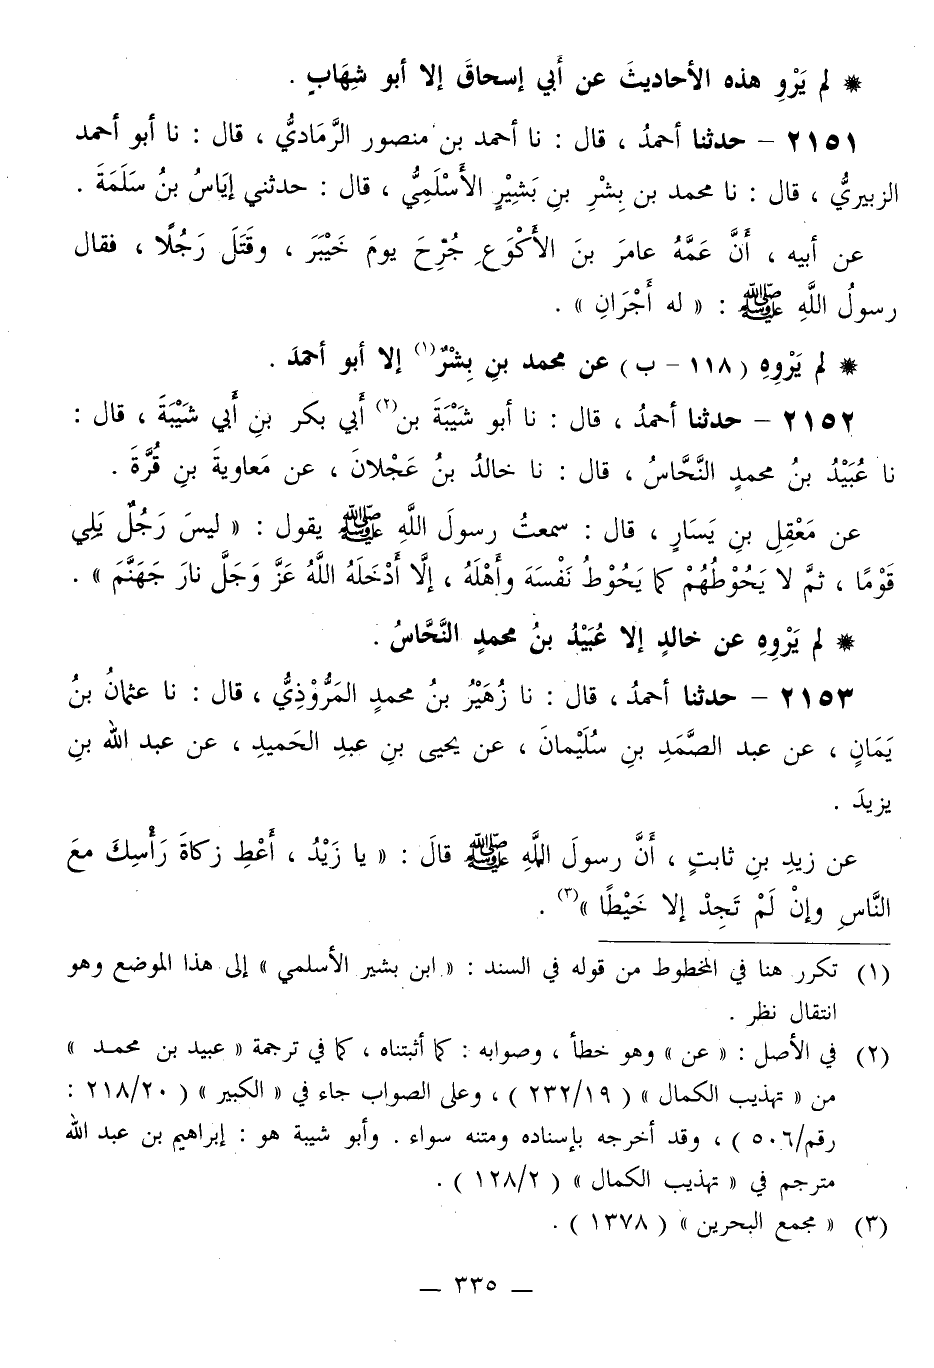 * لم يَرْوِ هذه الأحاديثَ عن أَبي إسحاقَ إلا أبو شِهَابٍ .
٢١٥١ – حدثنا أحمدُ ، قال : نا أحمد بن منصور الرَّمَاديُّ ، قال : نا أبو أحمد
الزبيريُّ ، قال : نا محمد بن بِشْرِ بنِ بَشِيْرٍ الأَسْلَمِيُّ ، قال : حدثني إيَاسُ بنُ سَلَمَةَ .
عن أبيه ، أَنَّ عَمَّهُ عامرَ بنَ الأَكْوَعِ جُرْحَ يومَ خَيْبَرَ ، وقَتَلَ رَجُلًا ، فقال
رسولُ اللَّهِ ﷺ : « له أَجْرَانِ » .
* لم يَرْوِهِ ( ١١٨ - ب ) عن محمد بنِ بِشْرٌ(١) إلا أبو أحمدَ .
٢١٥٢ – حدثنا أحمدُ ، قال : نا أبو شَيْبَةَ بن(٢) أَبي بكر بنِ أَبي شَيْبَةَ ، قال :
نا عُبَيْدُ بنُ محمدٍ النَّحَّاسُ ، قال : نا خالدُ بنُ عَجْلانَ ، عن مَعاويةَ بنِ قُرَّةَ .
عن مَعْقِلِ بنِ يَسَارٍ ، قال : سمعتُ رسولَ اللَّهِ ﷺ يقول : « ليسَ رَجُلٌ يَلِي
قَوْمًا ، ثمَّ لا يَحُوْطُهُمْ كما يَحُوْطُ نَفْسَهَ وأَهْلَهُ ، إلَّا أَدْخَلَهُ اللَّهُ عَزَّ وَجَلَّ نارَ جَهَنَّمَ » .
* لم يَرْوِهِ عن خالدٍ إلا عُبَيْدُ بنُ محمدٍ النَّحَّاسُ .
٢١٥٣ – حدثنا أحمدُ ، قال : نا زُهَيْرُ بنُ محمدٍ المَرُّوْذِيُّ ، قال : نا عثمانُ بنُ
يَمَانٍ ، عن عبد الصَّمَدِ بنِ سُلَيْمانَ ، عن يحيى بنِ عبدِ الحَميدِ ، عن عبد الله بنِ
يزيدَ .
عن زيدِ بنِ ثابتٍ ، أَنَّ رسولَ اللَّهِ ﷺ قالَ : « يا زَيْدُ ، أَعْطِ زكاةَ رَأْسِكَ معَ
النَّاسِ وإنْ لَمْ تَجِدْ إلا خَيْطًا »(٣) .
(١) تكرر هنا في المخطوط من قوله في السند : « ابن بشير الأسلمي » إلى هذا الموضع وهو
انتقال نظر .
(٢) في الأصل : « عن » وهو خطأ ، وصوابه : كما أثبتناه ، كما في ترجمة « عبيد بن محمد »
من « تهذيب الكمال » ( ٢٣٢/١٩ ) ، وعلى الصواب جاء في « الكبير » ( ٢١٨/٢٠ :
رقم/٥٠٦ ) ، وقد أخرجه بإسناده ومتنه سواء . وأبو شيبة هو : إبراهيم بن عبد الله
مترجم في « تهذيب الكمال » ( ١٢٨/٢ ) .
(٣) « مجمع البحرين » ( ١٣٧٨ ) .
— ٣٣٥ —